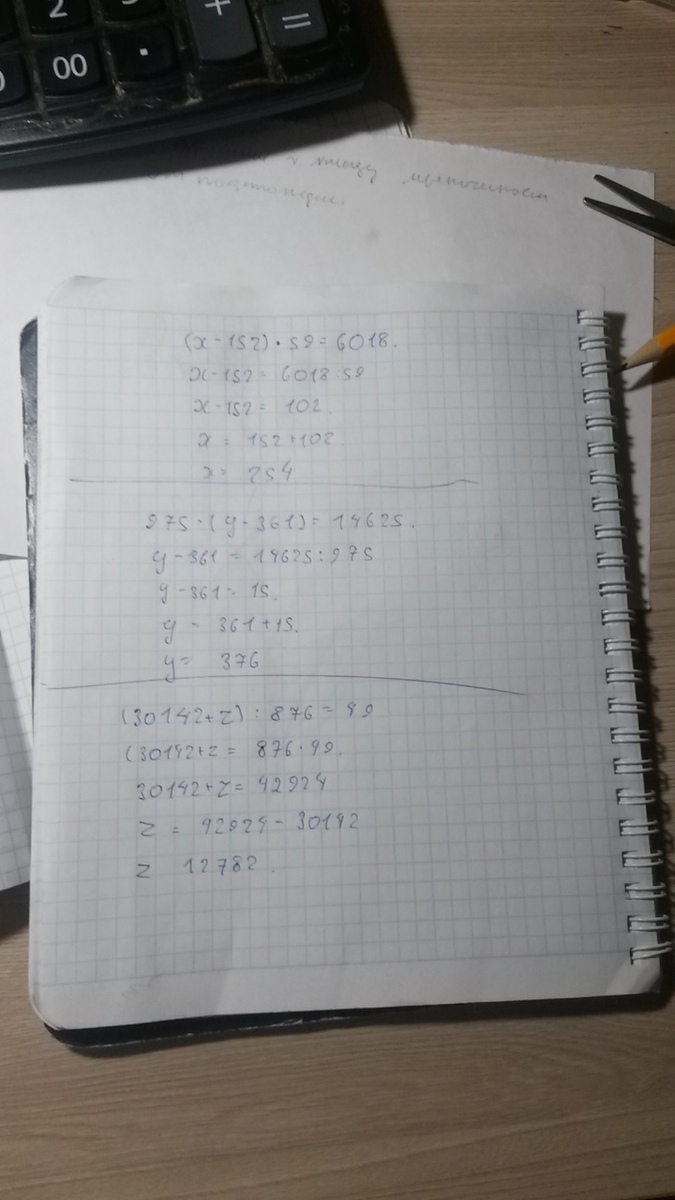 2
+
=
00
.
(x - 152) · 59 = 6018.
x - 152 = 6018 : 59
x - 152 = 102.
x = 152 + 102
x = 254
975 · (y - 361) = 14625.
y - 361 = 14625 : 975
y - 361 = 15.
y = 361 + 15.
y = 376
(30142 + z) : 876 = 49
(30142 + z = 876 · 49.
30142 + z = 42924
z = 42924 - 30142
z 12782.